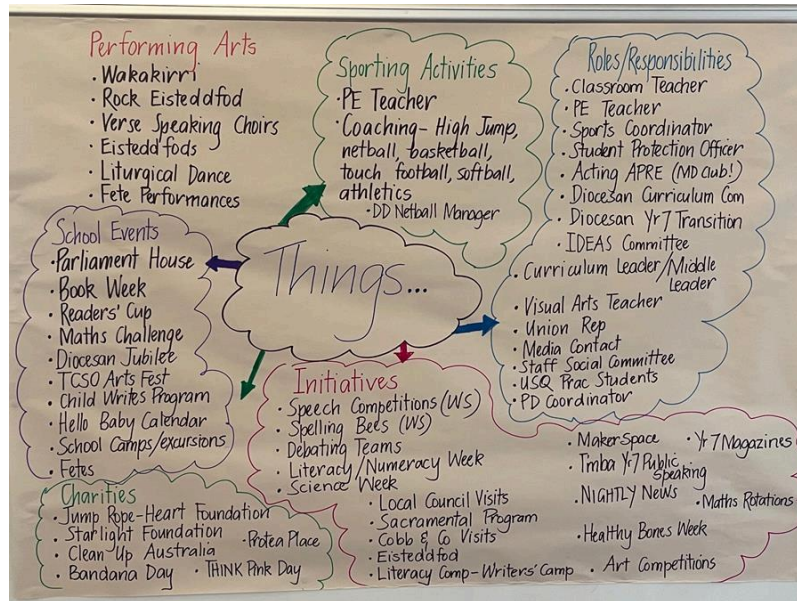 Performing Arts
• Wakakirri
• Rock Eisteddfod
• Verse Speaking Choirs
• Eistedd'fods
• Liturgical Dance
• Fete Performances
Sporting Activities
• PE Teacher
• Coaching - High Jump,
netball, basketball,
touch football, softball,
athletics
• DD Netball Manager
Roles/Responsibilities
• Classroom Teacher
• PE Teacher
• Sports Coordinator
• Student Protection Officer
• Acting APRE (MD club!)
• Diocesan Curriculum Com
• Diocesan Yr7 Transition
• IDEAS Committee
• Curriculum Leader/Middle
Leader
• Visual Arts Teacher
• Union Rep
• Media Contact
• Staff Social Committee
• USQ Prac Students
• PD Coordinator
Things...
School Events
• Parliament House
• Book Week
• Readers' Cup
• Maths Challenge
• Diocesan Jubilee
• TCSO Arts Fest
• Child Writes Program
• Hello Baby Calendar
• School Camps/excursions
• Fetes
Initiatives
• Speech Competitions (WS)
• Spelling Bees (WS)
• Debating Teams
• Literacy/Numeracy Week
• Science Week
• Local Council Visits
• Sacramental Program
• Cobb & Co Visits
• Eisteddfod
• Literacy Comp - Writers' Camp
• MakerSpace
• Yr 7 Magazines
• Tmba Yr7 Public
Speaking
• NIGHTLY NEWS
• Maths Rotations
• Healthy Bones Week
• Art Competitions
Charities
• Jump Rope - Heart Foundation
• Starlight Foundation
• Protea Place
• Clean Up Australia
• Bandana Day
• THINK Pink Day